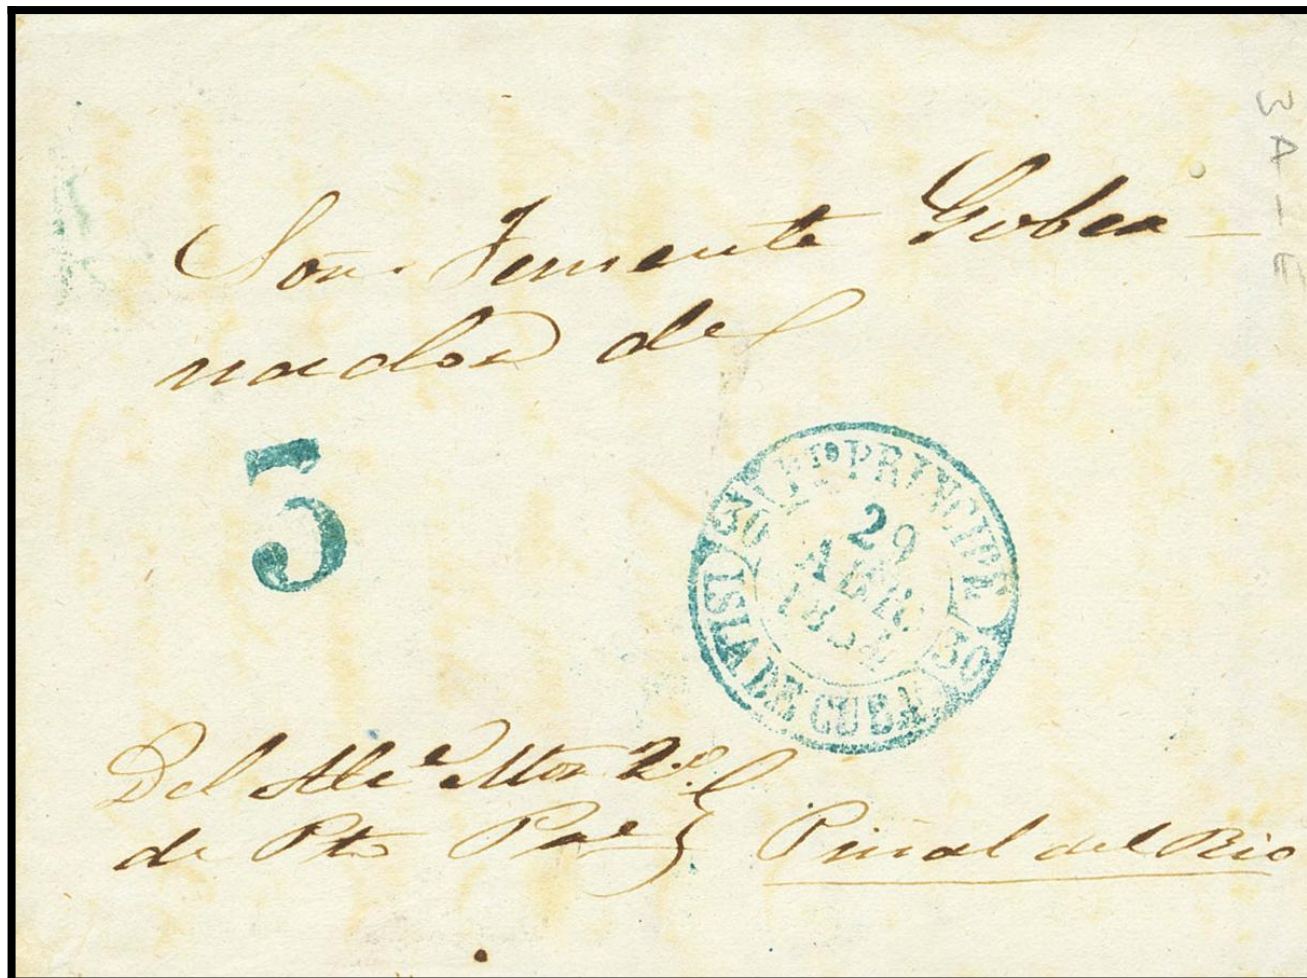 Sor. Teniente Gober-
nador del
3A-E
5
Pto PRINCIPE
30
29
ABR
1852
30
ISLA DE CUBA
Del Alce Mor 2º
de Pto Pe
Pinal del Rio